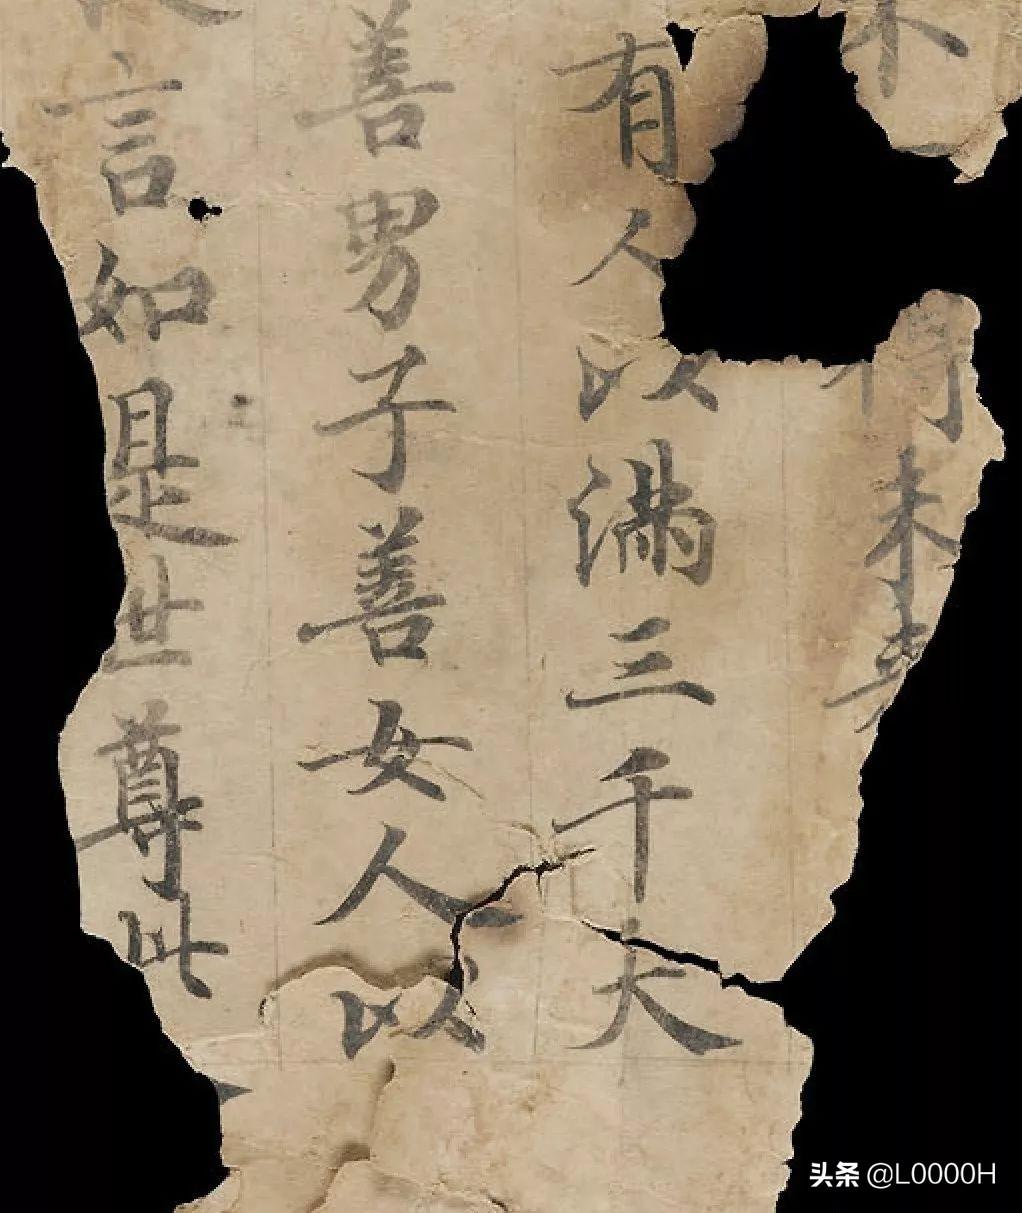 得未來
有人以滿三千大
善男子善女人以
言如是世尊此
头条 @L0000H